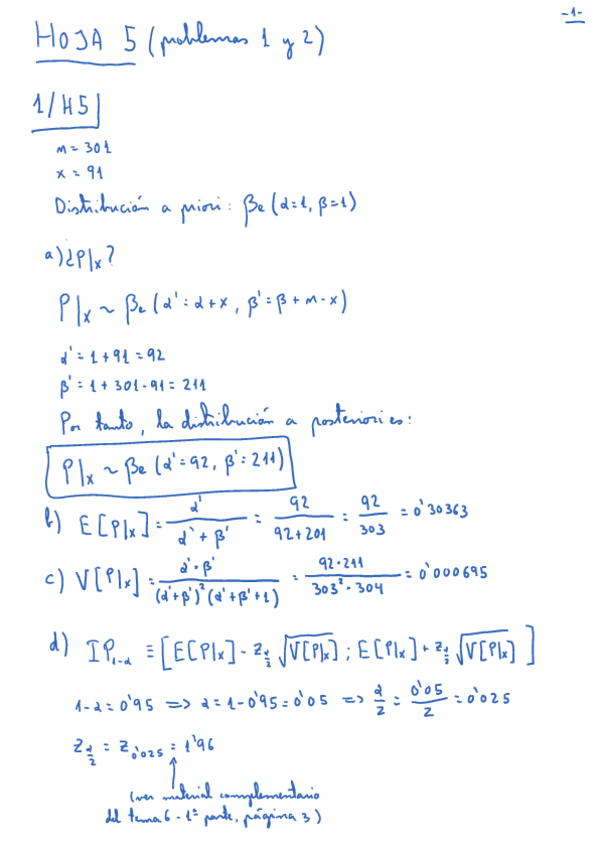 -1-
HOJA 5 (problemas 1 y 2)
1/H5
n = 301
x = 91
Distribución a priori: βe (α=1, β=1)
a) ¿P|x?
P|x ~ βe (α' = α+x, β' = β+n-x)
α' = 1+91 = 92
β' = 1+301-91 = 211
Por tanto, la distribución a posteriori es:
P|x ~ βe (α'=92, β'=211)
b) E[P|x] = α'/(α'+β') = 92/(92+201) = 92/303 = 0'30363
c) V[P|x] = α'·β'/((α'+β')²(α'+β'+1)) = 92·211/(303²·304) = 0'000695
d) IP₁₋α ≡ [E[P|x] - z_α/2 √V[P|x] ; E[P|x] + z_α/2 √V[P|x] ]
1-α = 0'95 => α = 1-0'95 = 0'05 => α/2 = 0'05/2 = 0'025
z_α/2 = z_0'025 = 1'96
(ver material complementario
del tema 6 - 1ª parte, página 3)